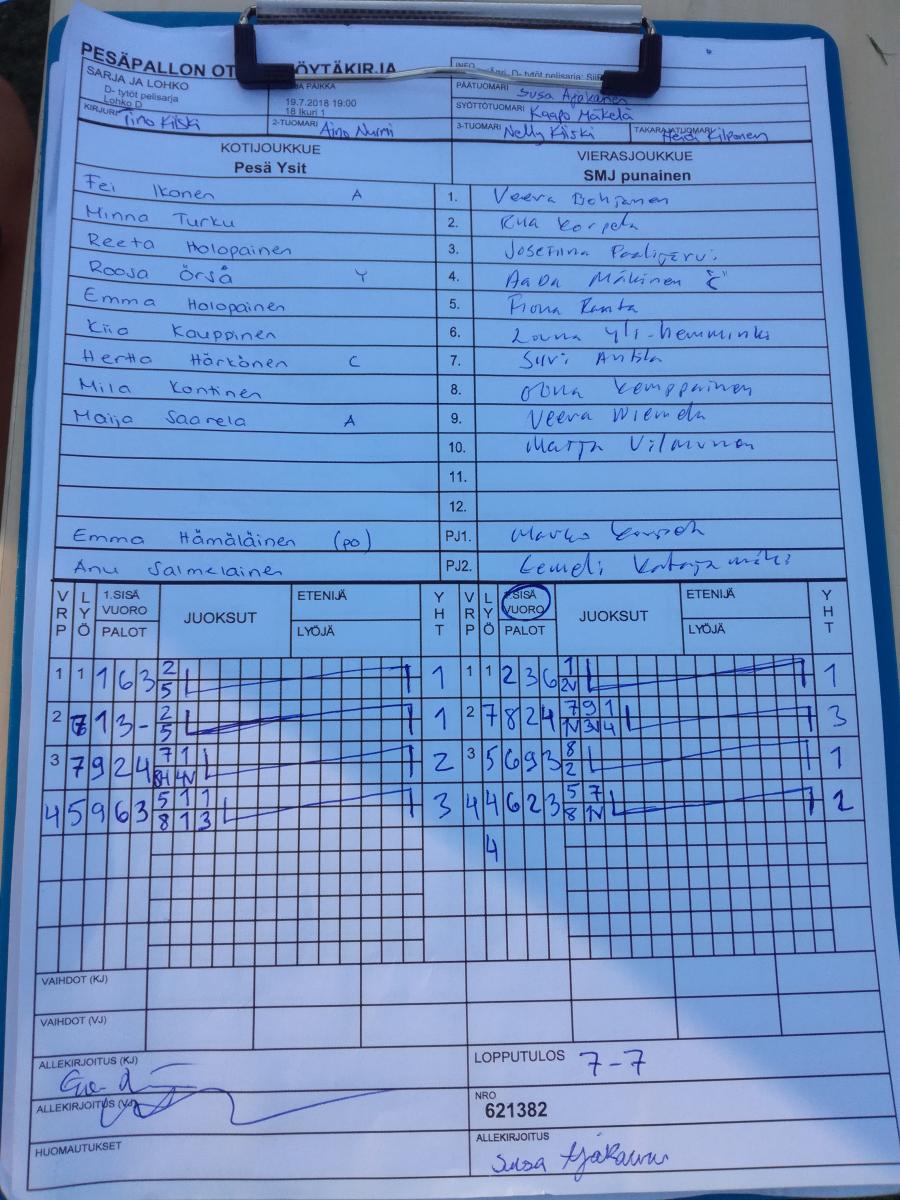 PESÄPALLON OT ÖYTÄKIRJA
SARJA JA LOHKO
D- tytöt pelisarja
Lohko D
JA PAIKKA
19.7.2018 19:00
18 Ikuri 1
PÄÄTUOMARI Susa Ajakainen
SYÖTTÖTUOMARI Kaapo Mäkelä
KIRJURI Tino Kiiski
2-TUOMARI Aino Nurmi
3-TUOMARI Nelly Kiiski
TAKARAJATUOMARI Heidi Kilponen
KOTIJOUKKUE
Pesä Ysit
VIERASJOUKKUE
SMJ punainen
Fei Ikonen A 1. Veera
Minna Turku 2. Korpela
Reeta Holopainen 3. Josefiina
Roosa Örså Y 4. Aada Mäkinen
Emma Holopainen 5. Fiona Ranta
Kiia Kauppinen 6. Yli-hemminki
Hertta Härkönen C 7. Siiri Anttila
Mila Kontinen 8. Kemppainen
Maija Saarela A 9. Veera
10. Marja
11.
12.
Emma Hämäläinen (po) PJ1. Marko
Anu Salmelainen PJ2.
VRP LYÖ 1.SISÄ VUORO PALOT JUOKSUT ETENIJÄ LYÖJÄ YHT VRP LYÖ 1.SISÄ VUORO PALOT JUOKSUT ETENIJÄ LYÖJÄ YHT
1 1 1 6 3 2 1 1 1 2 3 6 1 1
5 2V
2 7 1 3 - 2 1 2 7 8 2 4 7 9 1 3
5 1V 3V 4
3 7 9 2 4 7 1 2 3 5 6 9 3 8 1
8H 4V 2
4 5 9 6 3 5 1 1 3 4 4 6 2 3 5 7 2
8 1 3 8 1V
4
VAIHDOT (KJ)
VAIHDOT (VJ)
ALLEKIRJOITUS (KJ)
LOPPUTULOS 7-7
ALLEKIRJOITUS (VJ)
NRO
621382
HUOMAUTUKSET
ALLEKIRJOITUS
Susa Ajakainen